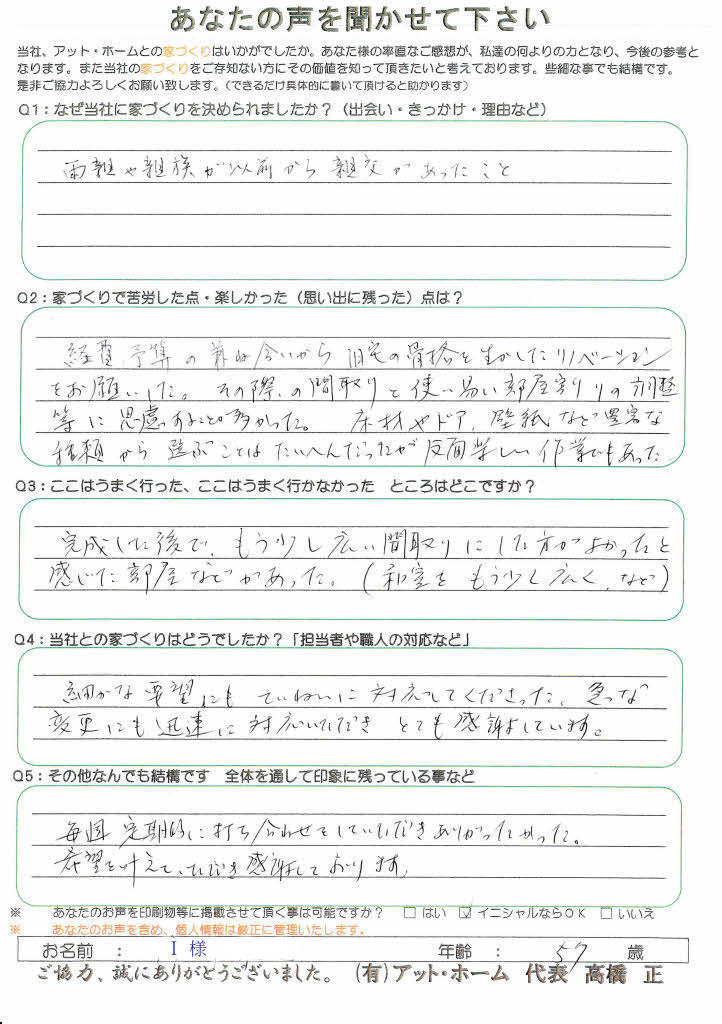 あなたの声を聞かせて下さい
当社、アット・ホームとの家づくりはいかがでしたか。あなた様の率直なご感想が、私達の何よりの力となり、今後の参考と
なります。また当社の家づくりをご存知ない方にその価値を知って頂きたいと考えております。些細な事でも結構です。
是非ご協力よろしくお願い致します。（できるだけ具体的に書いて頂けると助かります）
Q1：なぜ当社に家づくりを決められましたか？（出会い・きっかけ・理由など）
両親や親族が以前から親交があったこと
Q2：家づくりで苦労した点・楽しかった（思い出に残った）点は？
経費、予算の兼ね合いから旧宅の骨格を生かしたリノベーション
をお願いした。その際の間取りと使い易い部屋割りの調整
等に思慮することが多かった。床材やドア、壁紙など豊富な
種類から選ぶことはたいへんだったが反面楽しい作業でもあった
Q3：ここはうまく行った、ここはうまく行かなかった　ところはどこですか？
完成した後で、もう少し広い間取りにした方がよかったと
感じた部屋などがあった。（和室をもう少し広く、など）
Q4：当社との家づくりはどうでしたか？「担当者や職人の対応など」
細かな要望にもていねいに対応してくださった。急な
変更にも迅速に対応いただきとても感謝しています。
Q5：その他なんでも結構です　全体を通して印象に残っている事など
毎週定期的に打ち合わせをしていただきありがたかった。
希望を叶えていただき感謝しております。
※　あなたのお声を印刷物等に掲載させて頂く事は可能ですか？　□ はい　☑ イニシャルならOK　□ いいえ
※　あなたのお声を含め、個人情報は厳正に管理いたします。
お名前　：　I 様　年齢　：　57　歳
ご協力、誠にありがとうございました。（有）アット・ホーム　代表　高橋　正